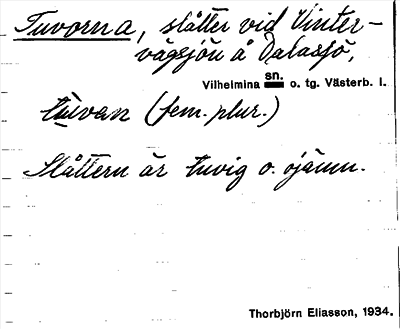 Tuvorna, slåtter vid Vinter-
vägsjön å Dalasjö,
Vilhelmina sn. o. tg. Västerb. l.
tuvan (fem. plur.)
Slåttern är tuvig o. ojämn.
Thorbjörn Eliasson, 1934.